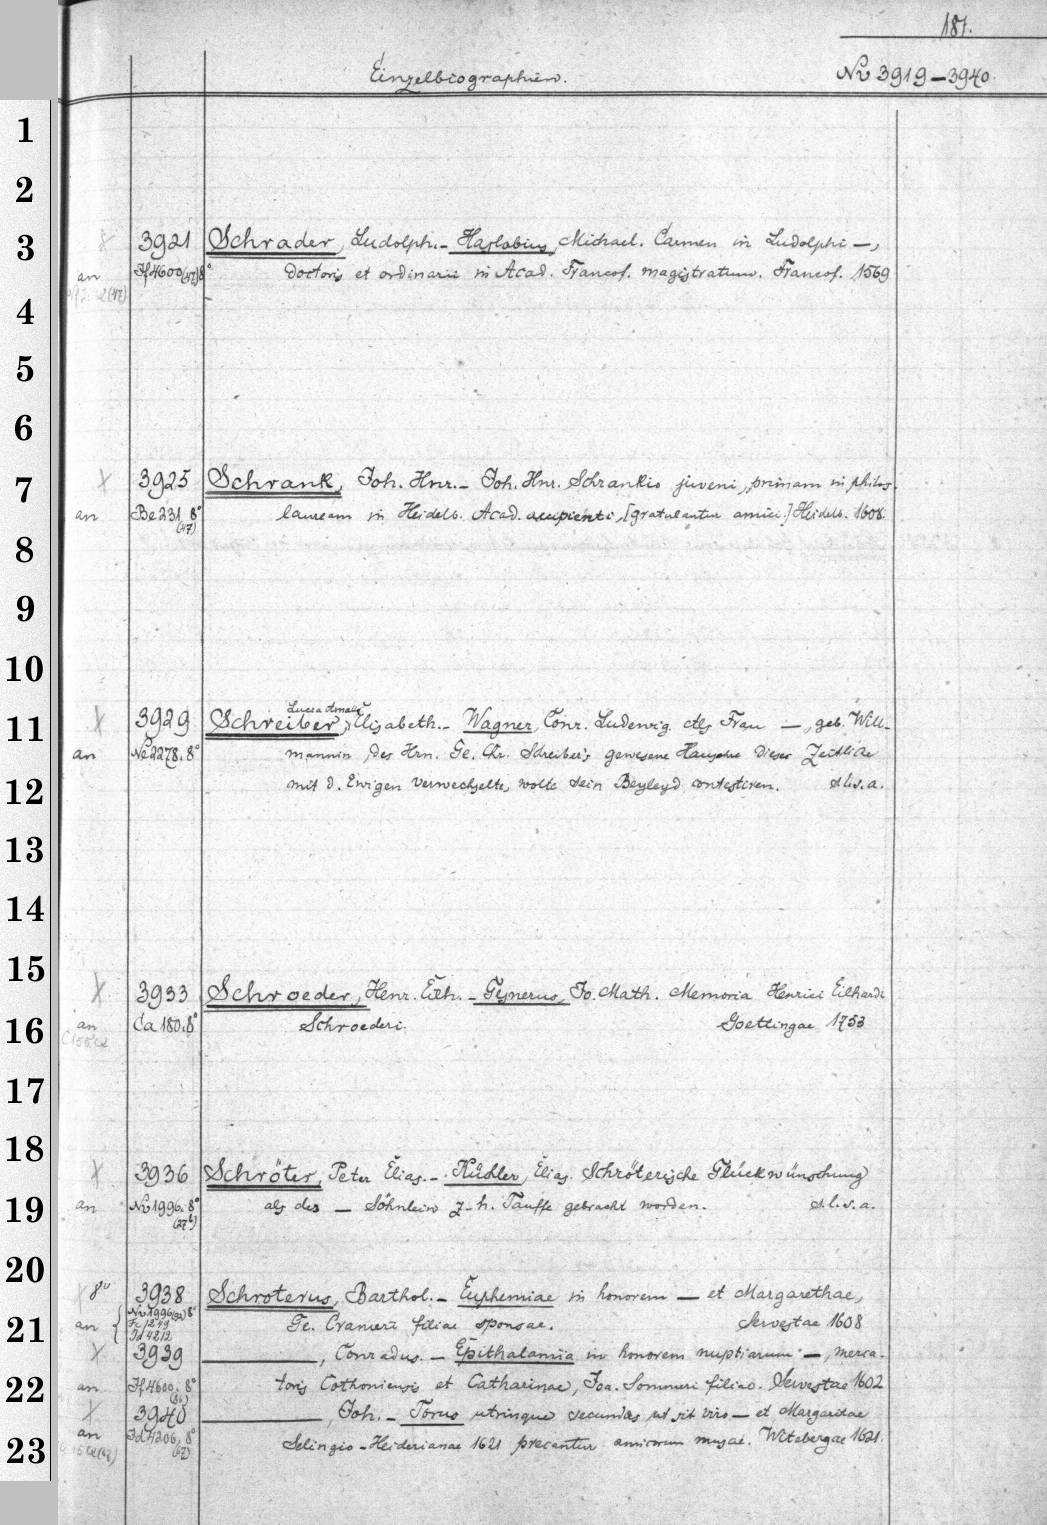 181.
Einzelbiographien. No 3919-3940.
1
2
3 3921 Schrader, Ludolph. - Haslobius, Michael. Carmen in Ludolphi —,
an If 4600 (57) 8° doctoris et ordinarii in Acad. Francof. magistratum. Francof. 1569
4
5
6
7 3925 Schrank, Joh. Hnr. - Joh. Hnr. Schrankio juveni, primam in philos.
an Be 231. 8° lauream in Heidelb. Acad. accipienti, [gratulantur amici.] Heidelb. 1608.
(47)
8
9
10
Lucia Amalie
11 3929 Schreiber, Elisabeth. - Wagner, Conr. Ludewig. Als Frau —, geb. Will-
an Ne 2278. 8° mannin, des Hrn. Ge. Chr. Schreiber's gewesene Hausehre dieses Zeitliche
12 mit d. Ewigen verwechselte, wolte sein Beyleyd contestiren. s.l.s.a.
13
14
15 3933 Schroeder, Henr. Eilh. - Gesnerus, Jo. Math. Memoria Henrici Eilhardi
16 an Ca 180. 8° Schroederi. Goettingae 1753
17
18 3936 Schröter, Peter Elias. - Küchler, Elias. Schröterische Glückwünschung
19 an Ne 1996. 8° als des — Söhnlein z. h. Tauffe gebracht worden. s.l.s.a.
20
8° 3938 Schroterus, Barthol. - Euphemiae in honorem — et Margarethae,
21 an Ge. Crameri filiae sponsae. Servestae 1608
Id 4212
3939 —, Conradus. - Epithalamia in honorem nuptiarum —, merca-
22 an If 4600. 8° toris Cothoniensis et Catharinae, Joa. Sommeri filiae. Servestae 1602
3940 —, Joh. - Torus utrinque secundus ut sit viro — et Margaritae
23 an Id 4206. 8° Selingio-Heiderianae 1621 precantur amicorum musae. Witebergae 1621.